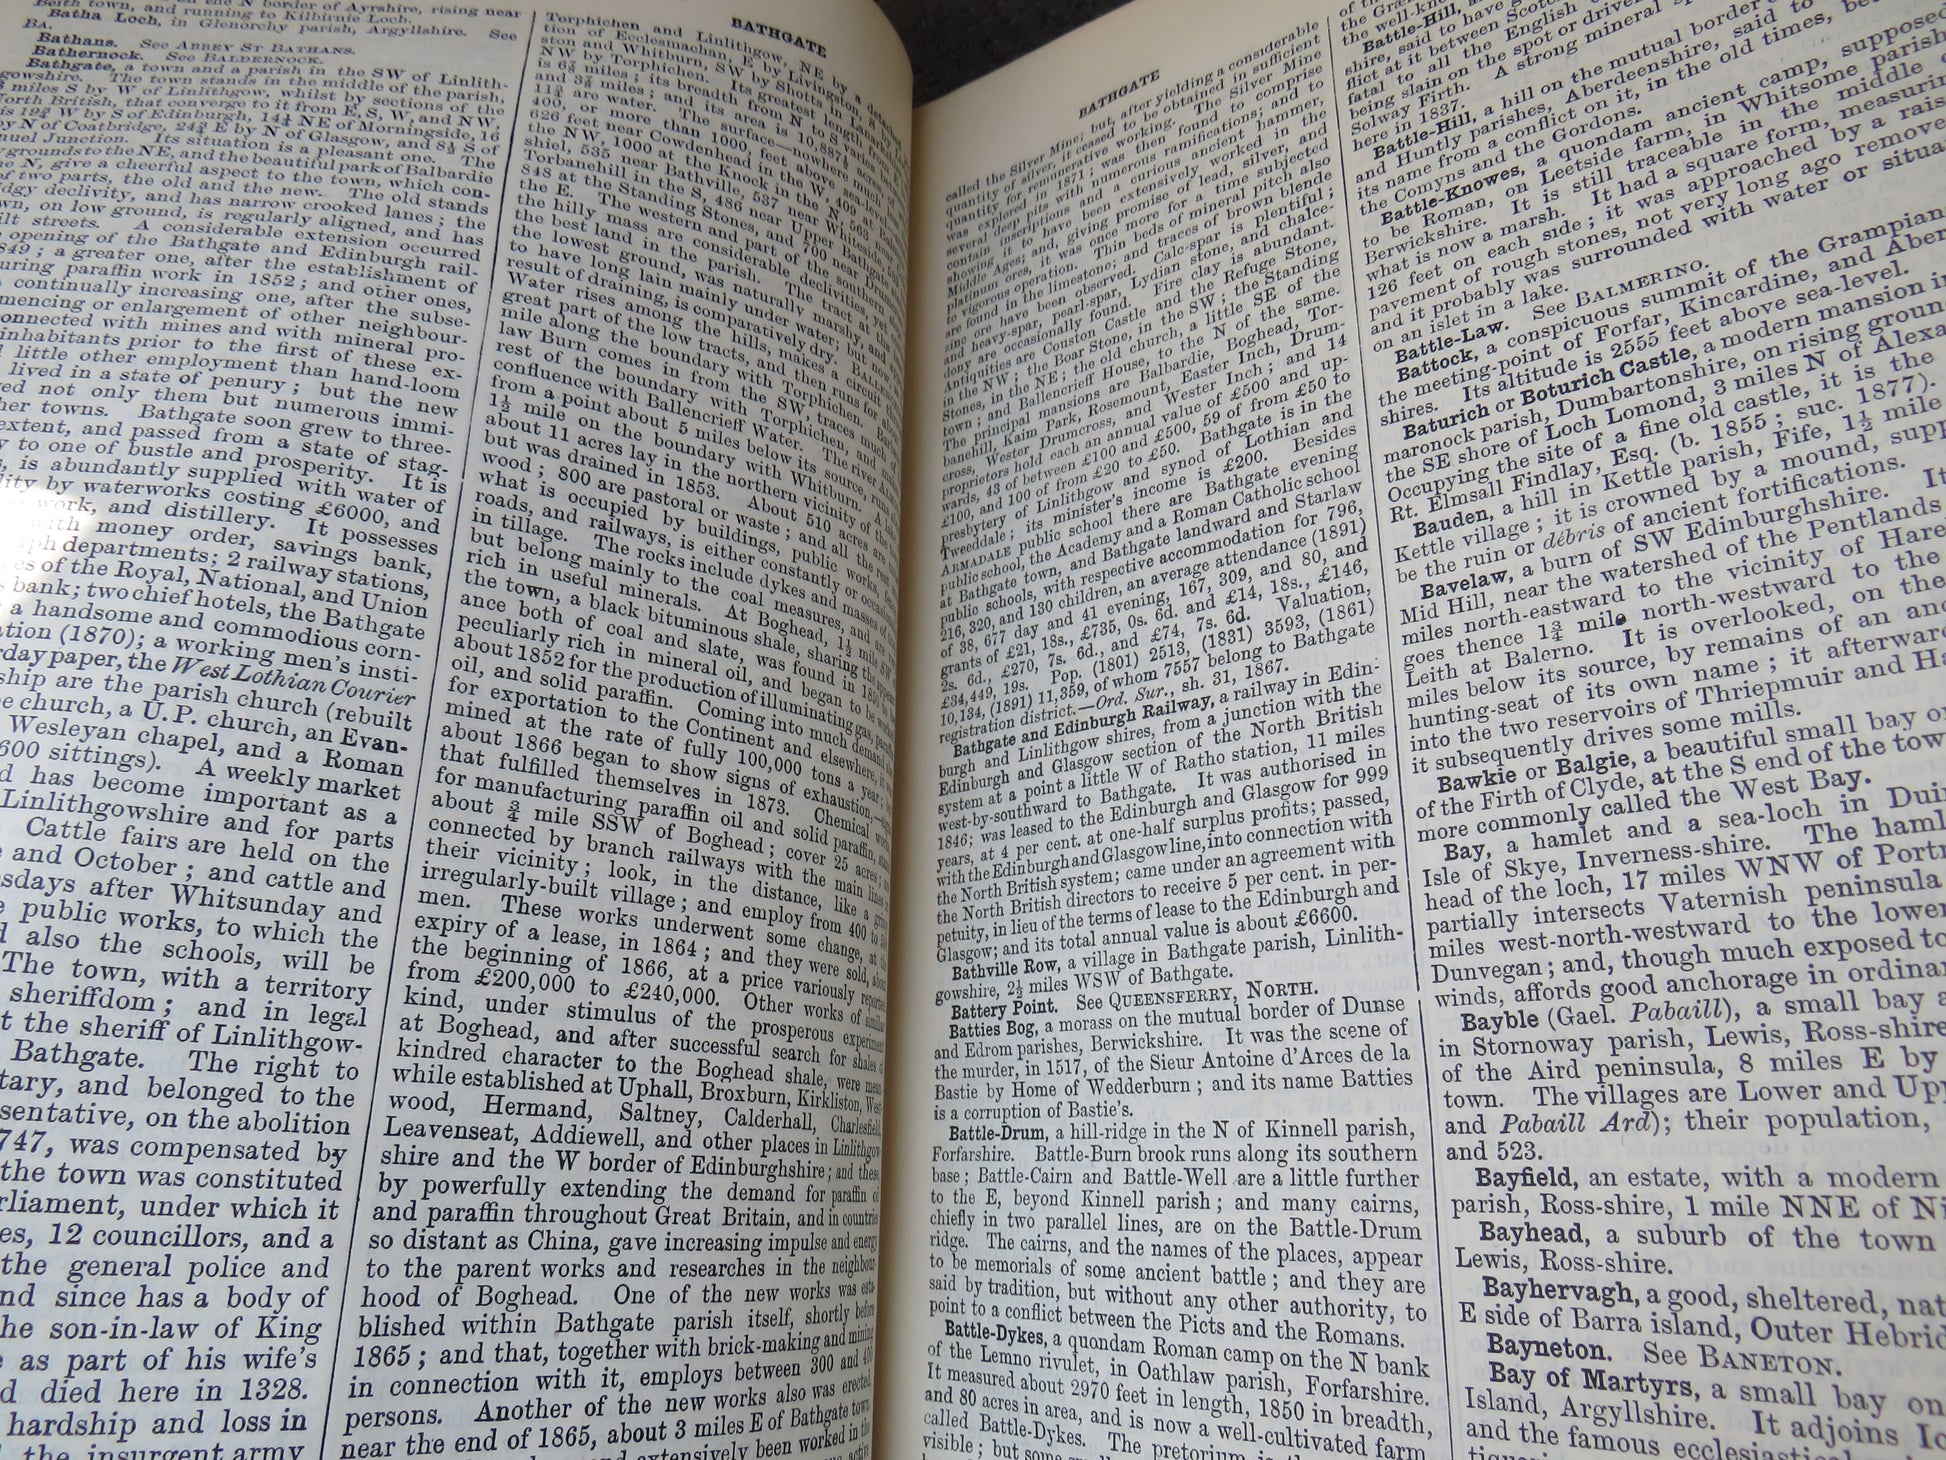 Beith town, and running to Kilbirnie Loch.
Batha Loch, in Glenorchy parish, Argyllshire. See
BA.
Bathans. See ABBEY ST BATHANS.
Bathernock. See BALDERNOCK.
Bathgate, a town and a parish in the SW of Linlith-
gowshire. The town stands in the middle of the parish,
miles S by W of Linlithgow, whilst by sections of the
North British, that converge to it from E, S, W, and NW,
is 19¾ W by S of Edinburgh, 14¼ NE of Morningside, 16
by N of Coatbridge, 24¾ E by N of Glasgow, and 8¼ S of
nuel Junction. Its situation is a pleasant one. The
grounds to the NE, and the beautiful park of Balbardie
N, give a cheerful aspect to the town, which con-
of two parts, the old and the new. The old stands
dgy declivity, and has narrow crooked lanes; the
wn, on low ground, is regularly aligned, and has
ilt streets. A considerable extension occurred
opening of the Bathgate and Edinburgh rail-
849; a greater one, after the establishment of
uring paraffin work in 1852; and other ones,
continually increasing one, after the subse-
mencing or enlargement of other neighbour-
onnected with mines and with mineral pro-
inhabitants prior to the first of these ex-
little other employment than hand-loom
lived in a state of penury; but the new
red not only them but numerous immi-
her towns. Bathgate soon grew to three-
extent, and passed from a state of stag-
y to one of bustle and prosperity. It is
, is abundantly supplied with water of
lity by waterworks costing £6000, and
work, and distillery. It possesses
with money order, savings bank,
ph departments; 2 railway stations,
es of the Royal, National, and Union
bank; two chief hotels, the Bathgate
a handsome and commodious corn-
ation (1870); a working men's insti-
rday paper, the West Lothian Courier
ship are the parish church (rebuilt
e church, a U.P. church, an Evan-
Wesleyan chapel, and a Roman
600 sittings). A weekly market
d has become important as a
Linlithgowshire and for parts
Cattle fairs are held on the
e and October; and cattle and
sdays after Whitsunday and
e public works, to which the
d also the schools, will be
The town, with a territory
sheriffdom; and in legal
t the sheriff of Linlithgow-
Bathgate. The right to
tary, and belonged to the
sentative, on the abolition
747, was compensated by
the town was constituted
rliament, under which it
es, 12 councillors, and a
the general police and
nd since has a body of
he son-in-law of King
e as part of his wife's
d died here in 1328.
hardship and loss in
the insurgent army
BATHGATE
Torphichen and Linlithgow, NE by a detached
tion of Ecclesmachan, E by Livingston, S by
ston and Whitburn, SW by Shotts in Lanark
NW by Torphichen. Its greatest length
is 6¾ miles; its breadth from N to S varies
and 3¾ miles; and its area is 10,887¼ acres
11¾ are water. The surface—nowhere much
400, or more than 1000, feet above sea-level
626 feet near Cowdenhead in the W, 409 at
the NW, 1000 at the Knock in the N, 563 near
shiel, 535 near Bathville, 537 near Whiteside
Torbanehill in the S, 486 near Upper Bathgate
848 at the Standing Stones, and 700 near Drum
the E. The western and part of the southern
the hilly mass are considerable declivities, yet
the best land in the parish. The tract at
the lowest ground, was naturally marshy, and
to have long lain mainly under water; but now
result of draining, is comparatively dry. BALLEN
Water rises among the hills, makes a circuit
great part of the low tracts, and then runs for
mile along the boundary with Torphichen.
law Burn comes in from the SW, traces much of
rest of the boundary with Torphichen, and
confluence with Ballencrieff Water. The river
from a point about 5 miles below its source, runs
1½ mile on the boundary with Whitburn. A
about 11 acres lay in the northern vicinity of the
but was drained in 1853. About 510 acres are
wood; 800 are pastoral or waste; and all the rest
what is occupied by buildings, public works,
roads, and railways, is either constantly or occas
in tillage. The rocks include dykes and masses of
but belong mainly to the coal measures, and are
rich in useful minerals. At Boghead, 1½ mile
the town, a black bituminous shale, sharing the appear
ance both of coal and slate, was found in 1850
peculiarly rich in mineral oil, and began to be worked
about 1852 for the production of illuminating gas, paraffin
oil, and solid paraffin. Coming into much demand
for exportation to the Continent and elsewhere, it
mined at the rate of fully 100,000 tons a year; but
about 1866 began to show signs of exhaustion,—signs
that fulfilled themselves in 1873. Chemical works
for manufacturing paraffin oil and solid paraffin,
about ¾ mile SSW of Boghead; cover 25 acres;
connected by branch railways with the main lines
their vicinity; look, in the distance, like a grimy
irregularly-built village; and employ from 400 to
men. These works underwent some change, at the
expiry of a lease, in 1864; and they were sold, about
the beginning of 1866, at a price variously reported
from £200,000 to £240,000. Other works of similar
kind, under stimulus of the prosperous experiment
at Boghead, and after successful search for shales of
kindred character to the Boghead shale, were mean
while established at Uphall, Broxburn, Kirkliston, West
wood, Hermand, Saltney, Calderhall, Charlesfield,
Leavenseat, Addiewell, and other places in Linlithgow
shire and the W border of Edinburghshire; and these,
by powerfully extending the demand for paraffin oil
and paraffin throughout Great Britain, and in countries
so distant as China, gave increasing impulse and energy
to the parent works and researches in the neighbour
hood of Boghead. One of the new works was esta-
blished within Bathgate parish itself, shortly before
1865; and that, together with brick-making and mining
in connection with it, employs between 300 and 400
persons. Another of the new works also was erected,
near the end of 1865, about 3 miles E of Bathgate town
extensively been worked in the
BATHGATE
called the Silver Mine; but, after yielding a considerable
quantity of silver, it ceased to be obtained in sufficient
quantity for remunerative working. The Silver Mine
was explored in 1871; was then found to comprise
several deep pits with numerous ramifications; and to
contain inscriptions and a curious ancient hammer,
showing it to have been extensively worked in the
Middle Ages; and, giving promise of lead, silver, and
platinum ores, it was once more for a time subjected
to vigorous operation. Thin beds of mineral pitch also
are found in the limestone; and traces of brown blende
zinc ore have been observed. Calc-spar is plentiful;
and heavy-spar, pearl-spar, Lydian stone, and chalce-
dony are occasionally found. Fire clay is abundant.
Antiquities are Couston Castle and the Refuge Stone,
in the NW; the Boar Stone, in the SW; the Standing
Stones, in the NE; the old church, a little SE of the
town; and Ballencrieff House, to the N of the same.
The principal mansions are Balbardie, Boghead, Tor-
banehill, Kaim Park, Rosemount, Easter Inch, Drum-
cross, Wester Drumcross, and Wester Inch; and 14
proprietors hold each an annual value of £500 and up-
wards, 43 of between £100 and £500, 59 of from £50 to
£100, and 100 of from £20 to £50. Bathgate is in the
presbytery of Linlithgow and synod of Lothian and
Tweeddale; its minister's income is £200. Besides
ARMADALE public school there are Bathgate evening
public school, the Academy and a Roman Catholic school
at Bathgate town, and Bathgate landward and Starlaw
public schools, with respective accommodation for 796,
216, 320, and 130 children, an average attendance (1891)
of 38, 677 day and 41 evening, 167, 309, and 80, and
grants of £21, 18s., £735, 0s. 6d. and £14, 18s., £146,
2s. 6d., £270, 7s. 6d., and £74, 7s. 6d. Valuation,
£34,449, 19s. Pop. (1801) 2513, (1831) 3593, (1861)
10,134, (1891) 11,359, of whom 7557 belong to Bathgate
registration district.—Ord. Sur., sh. 31, 1867.
Bathgate and Edinburgh Railway, a railway in Edin-
burgh and Linlithgow shires, from a junction with the
Edinburgh and Glasgow section of the North British
system at a point a little W of Ratho station, 11 miles
west-by-southward to Bathgate. It was authorised in
1846; was leased to the Edinburgh and Glasgow for 999
years, at 4 per cent. at one-half surplus profits; passed,
with the Edinburgh and Glasgow line, into connection with
the North British system; came under an agreement with
the North British directors to receive 5 per cent. in per-
petuity, in lieu of the terms of lease to the Edinburgh and
Glasgow; and its total annual value is about £6600.
Bathville Row, a village in Bathgate parish, Linlith-
gowshire, 2½ miles WSW of Bathgate.
Battery Point. See QUEENSFERRY, NORTH.
Batties Bog, a morass on the mutual border of Dunse
and Edrom parishes, Berwickshire. It was the scene of
the murder, in 1517, of the Sieur Antoine d'Arces de la
Bastie by Home of Wedderburn; and its name Batties
is a corruption of Bastie's.
Battle-Drum, a hill-ridge in the N of Kinnell parish,
Forfarshire. Battle-Burn brook runs along its southern
base; Battle-Cairn and Battle-Well are a little further
to the E, beyond Kinnell parish; and many cairns,
chiefly in two parallel lines, are on the Battle-Drum
ridge. The cairns, and the names of the places, appear
to be memorials of some ancient battle; and they are
said by tradition, but without any other authority, to
point to a conflict between the Picts and the Romans.
Battle-Dykes, a quondam Roman camp on the N bank
of the Lemno rivulet, in Oathlaw parish, Forfarshire.
It measured about 2970 feet in length, 1850 in breadth,
and 80 acres in area, and is now a well-cultivated farm
called Battle-Dykes. The pretorium is
visible; but some
the well-know
Battle-Hill,
shire, said to have
flict at it between Scots
fatal to all the English
being slain on the spot or driven
Solway Firth. A strong mineral
here in 1837.
Battle-Hill, a hill on the mutual border
and Huntly parishes, Aberdeenshire, said to
its name from a conflict on it, in the old times, be
the Comyns and the Gordons.
Battle-Knowes, a quondam ancient camp, supposed
to be Roman, on Leetside farm, in Whitsome parish
Berwickshire. It is still traceable in the middle
what is now a marsh. It had a square form, measuring
126 feet on each side; it was approached by a rais
pavement of rough stones, not very long ago remove
and it probably was surrounded with water or situa
on an islet in a lake.
Battle-Law. See BALMERINO.
Battock, a conspicuous summit of the Grampian
the meeting-point of Forfar, Kincardine, and Aber
shires. Its altitude is 2555 feet above sea-level.
Baturich or Boturich Castle, a modern mansion in
maronock parish, Dumbartonshire, on rising ground
the SE shore of Loch Lomond, 3 miles N of Alexa
Occupying the site of a fine old castle, it is the
Rt. Elmsall Findlay, Esq. (b. 1855; suc. 1877).
Bauden, a hill in Kettle parish, Fife, 1½ mile
Kettle village; it is crowned by a mound, supp
be the ruin or débris of ancient fortifications.
Bavelaw, a burn of SW Edinburghshire. It
Mid Hill, near the watershed of the Pentlands
miles north-eastward to the vicinity of Hare
goes thence 1¾ mile north-westward to the
Leith at Balerno. It is overlooked, on the
miles below its source, by remains of an anc
hunting-seat of its own name; it afterward
into the two reservoirs of Thriepmuir and Ha
it subsequently drives some mills.
Bawkie or Balgie, a beautiful small bay o
of the Firth of Clyde, at the S end of the tow
more commonly called the West Bay.
Bay, a hamlet and a sea-loch in Duir
Isle of Skye, Inverness-shire. The haml
head of the loch, 17 miles WNW of Portr
partially intersects Vaternish peninsula
miles west-north-westward to the lower
Dunvegan; and, though much exposed to
winds, affords good anchorage in ordinar
Bayble (Gael. Pabaill), a small bay a
in Stornoway parish, Lewis, Ross-shire
of the Aird peninsula, 8 miles E by
town. The villages are Lower and Upp
and Pabaill Ard); their population,
and 523.
Bayfield, an estate, with a modern
parish, Ross-shire, 1 mile NNE of Ni
Bayhead, a suburb of the town
Lewis, Ross-shire.
Bayhervagh, a good, sheltered, nat
E side of Barra island, Outer Hebrid
Bayneton. See BANETON.
Bay of Martyrs, a small bay on
Island, Argyllshire. It adjoins Io
and the famous ecclesiastical